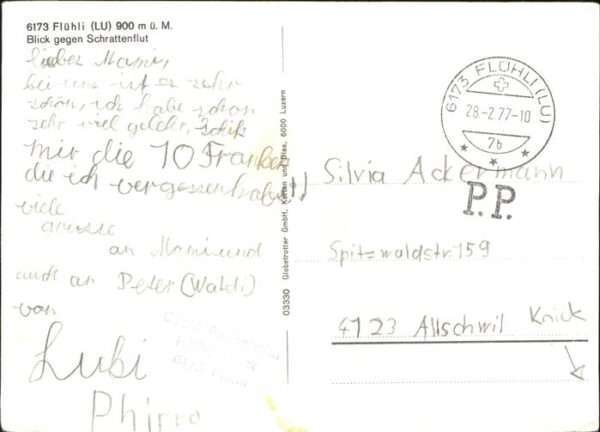 6173 Flühli (LU) 900 m ü. M.
Blick gegen Schrattenflut
lieber Mami,
bei uns ist es sehr
schön, ich habe schon
sehr viel gelder, schik
mir die 10 Franken
die ich vergessenhab!!
viele
grüsse
an Mami und
auch an Peter (Waldi)
von
Lubi
Phirro
03330 Globetrotter GmbH, Karten und 6000 Luzern
6173 FLÜHLI (LU)
28-2.77-10
7b
P.P.
Silvia Ackermann
Spitzwaldstr. 159
4123 Allschwil
Knick